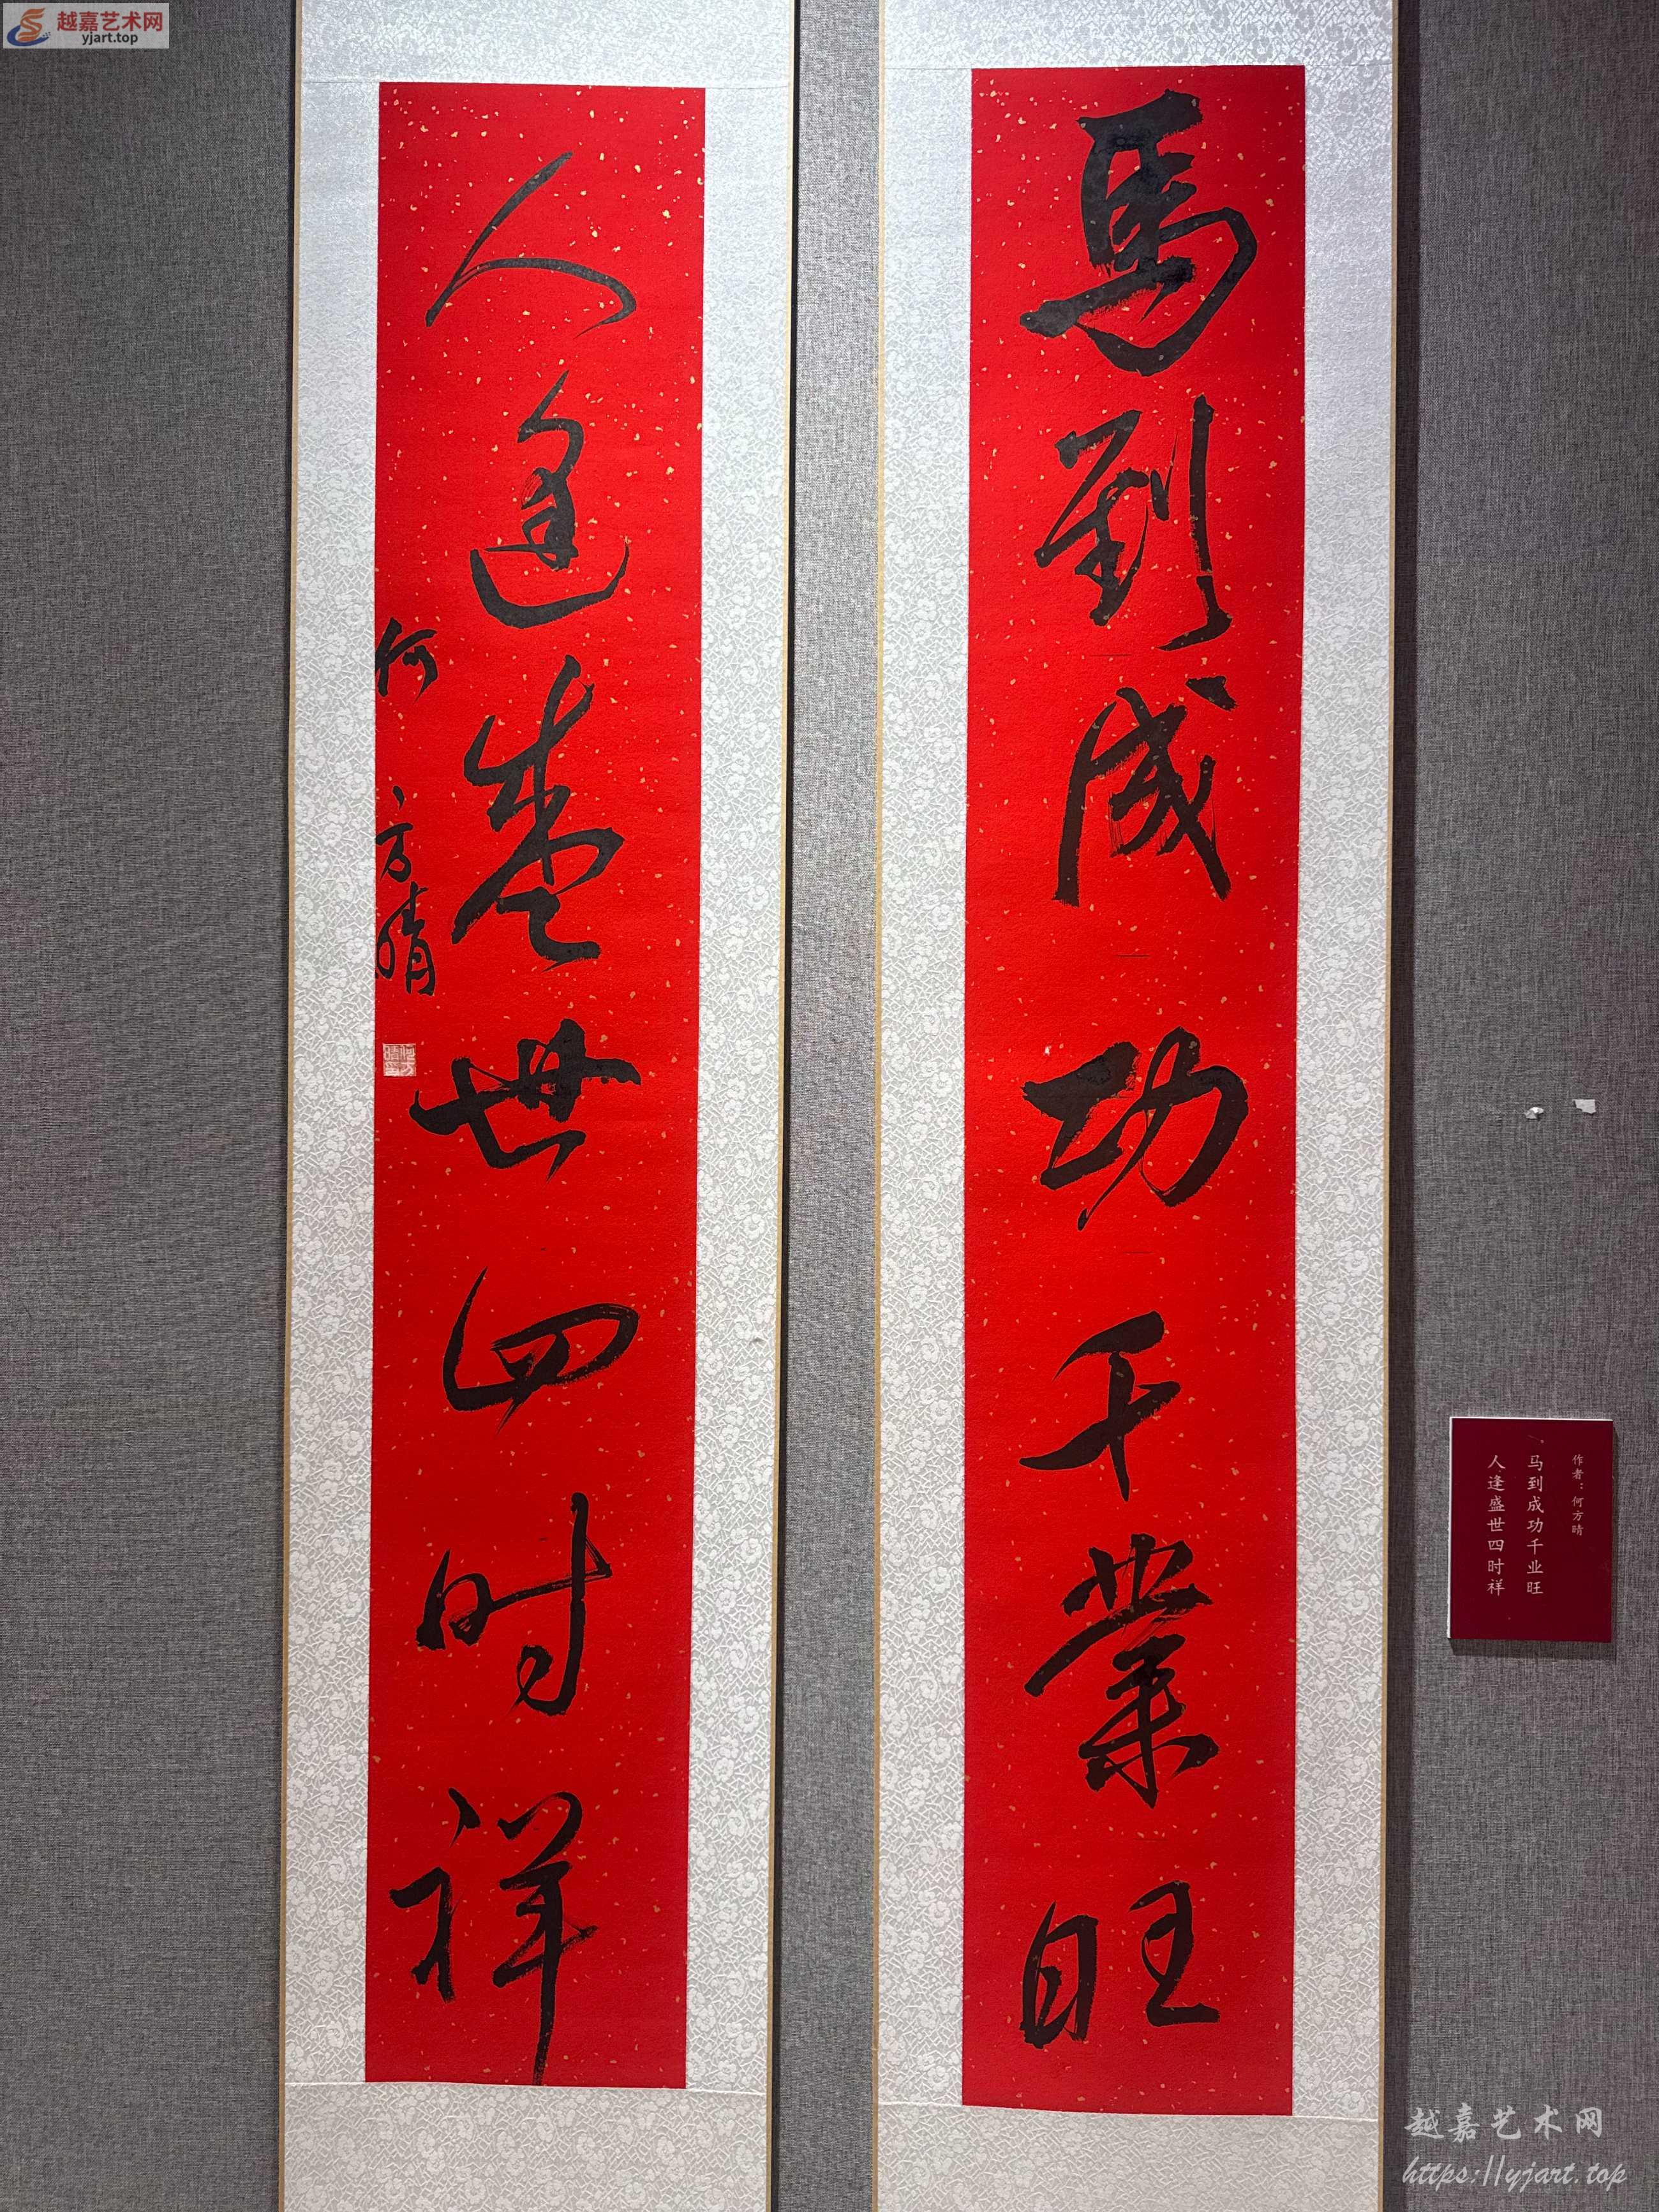 越嘉艺术网
yjart.top
馬到成功千業旺
人逢盛世四时祥
何方晴
作者：何方晴
马到成功千业旺
人逢盛世四时祥
越嘉艺术网
https://yjart.top